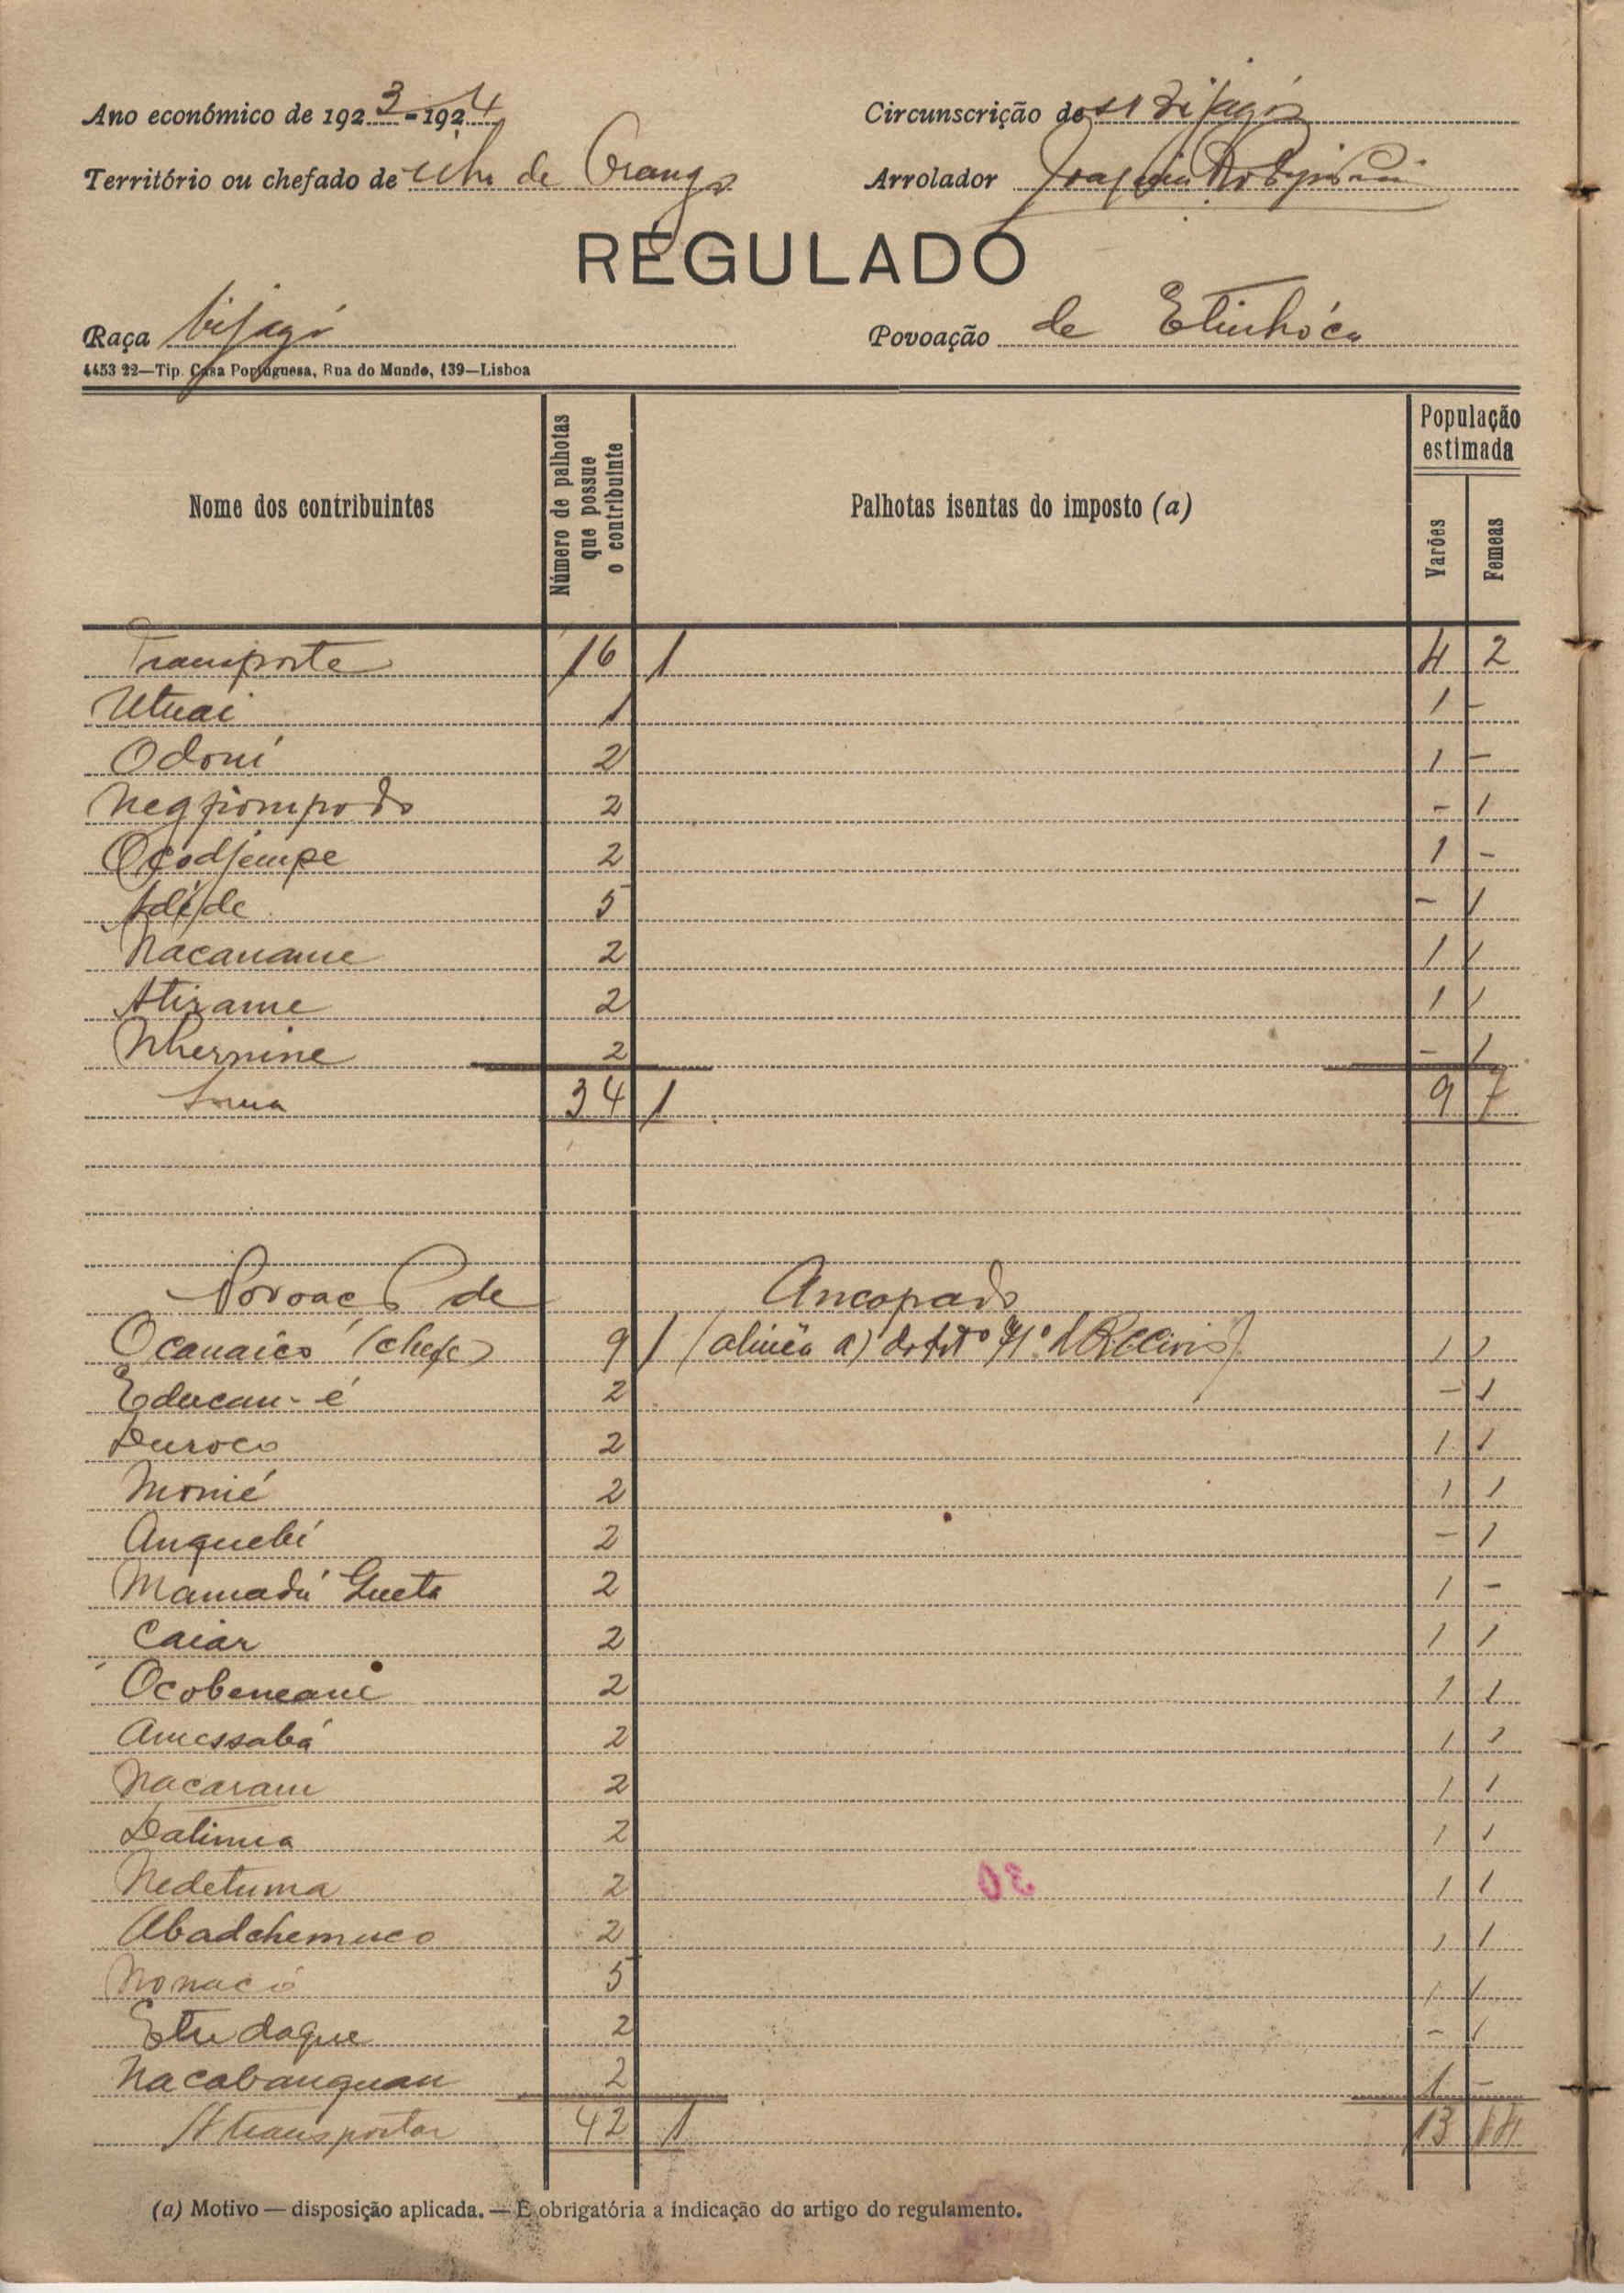 Ano económico de 1923-1924 Circunscrição dos Bijagós
Território ou chefado de ilha de Orango Arrolador Joaquim
REGULADO
Raça bijagó Povoação de Etinhóca
4453 22—Tip. Casa Portuguesa, Rua do Mundo, 139—Lisboa
Nome dos contribuintes Número de palhotas que possue o contribuinte Palhotas isentas do imposto (a) População estimada Varões Femeas
Transporte 16 1 4 2
Utuai 1 1 -
Odoni 2 1 -
Negpiompodo 2 - 1
Ocodjempe 2 1 -
Adéjde 5 - 1
Nacaname 2 1 1
Atirame 2 1 1
Nhernine 2 - 1
Soma 34 1 9 7
Povoação de Ancopado
Ocanaico (chefe) 9 1 (alinea a) do Art.º 41º 1 1
Educan-é 2 - 1
Duroco 2 1 1
Monié 2 1 1
Anquebí 2 - 1
Mamadú Gueta 2 1 -
Caiar 2 1 1
Ocobeneani 2 1 1
Amessabá 2 1 1
Nacaram 2 1 1
Dalimia 2 1 1
Nedetuma 2 1 1
30
Abadchemuco 2 1 1
Nonacó 5 1 1
Etudaque 2 - 1
Nacobanguan 2 1 -
A transportar 42 1 13 14
(a) Motivo — disposição aplicada. — É obrigatória a indicação do artigo do regulamento.